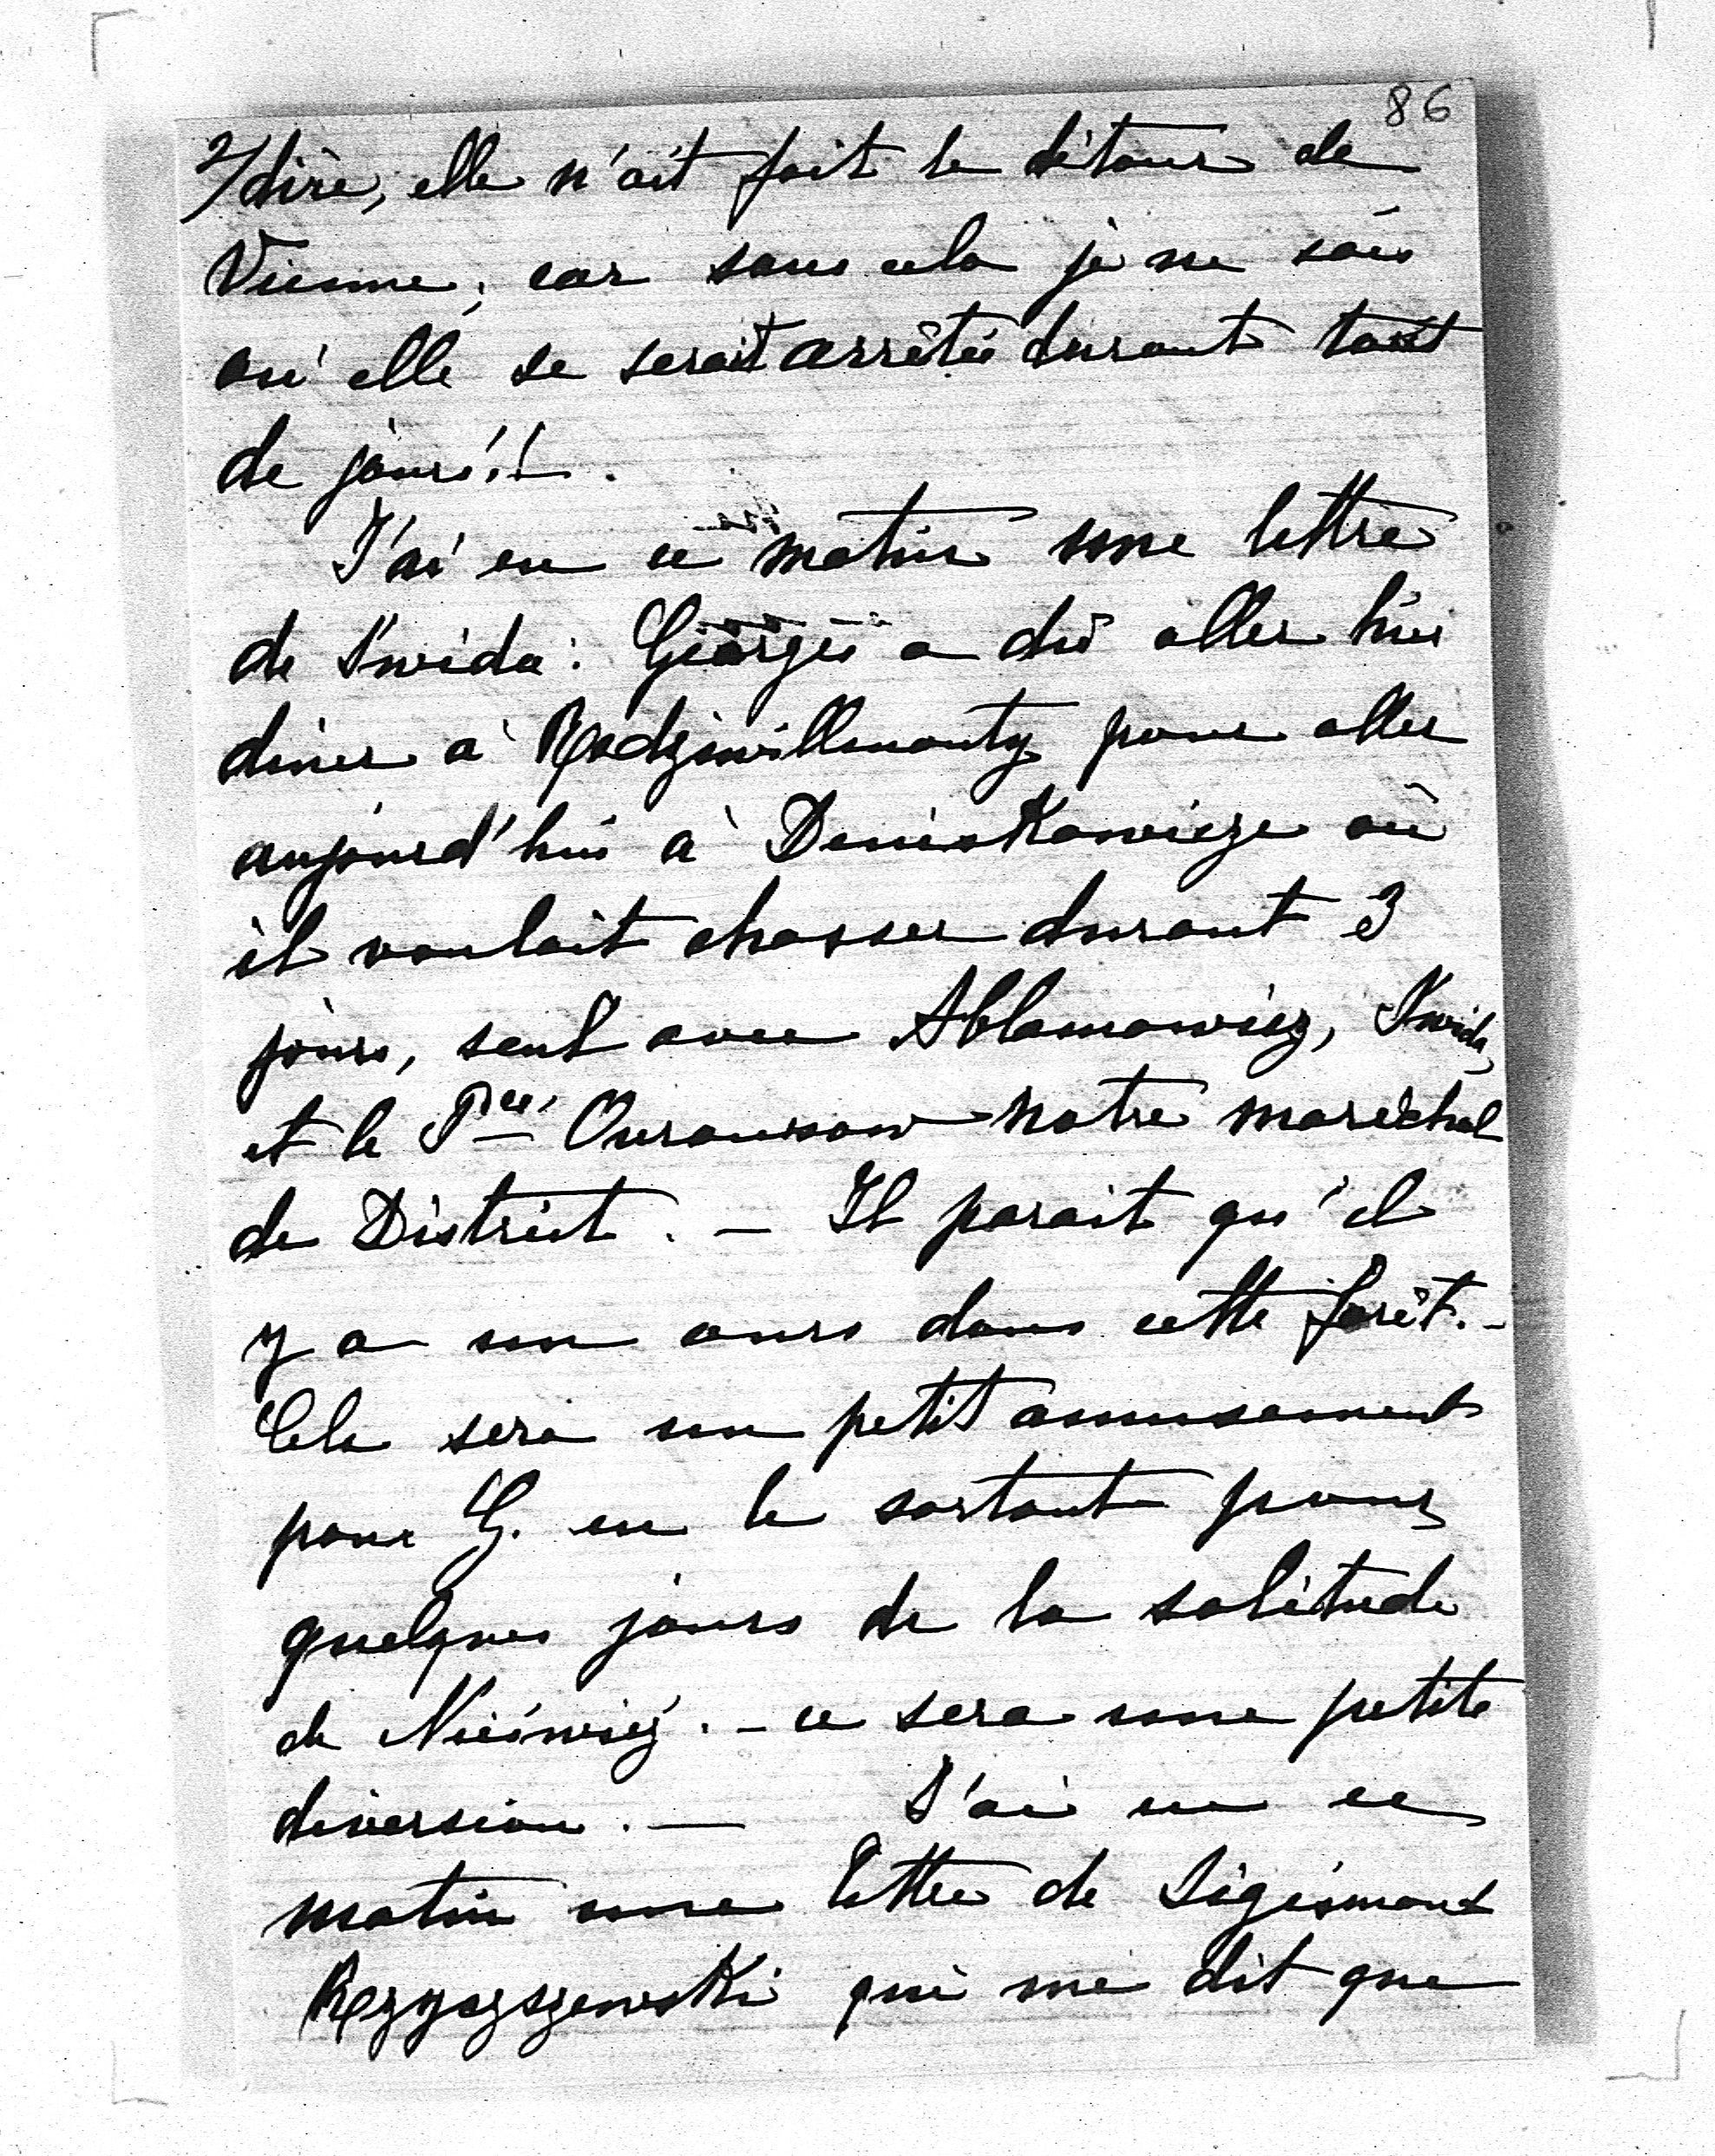 86
2/dire, elle n'ait fait le détour de
Vienne; car sans cela je ne sais
où elle se serait arrêtée durant tant
de jours!!.
J'ai eu ce matin une lettre
de Swida: Georges a dû aller hier
diner à Radziwillmonty pour aller
aujourd'hui à Deniskowicze où
il voulait chasser durant 3
jours, seul avec Ablamowicz, Swida,
et le Pce Ouroussow notre maréchal
de District. — Il parait qu'il
y a un ours dans cette forêt. -
Cela sera un petit amusement
pour G. en le sortant pour
quelques jours de la solitude
de Nieświéz. - ce sera une petite
diversion. — J'ai eu ce
matin une lettre de Sigismont
qui me dit que